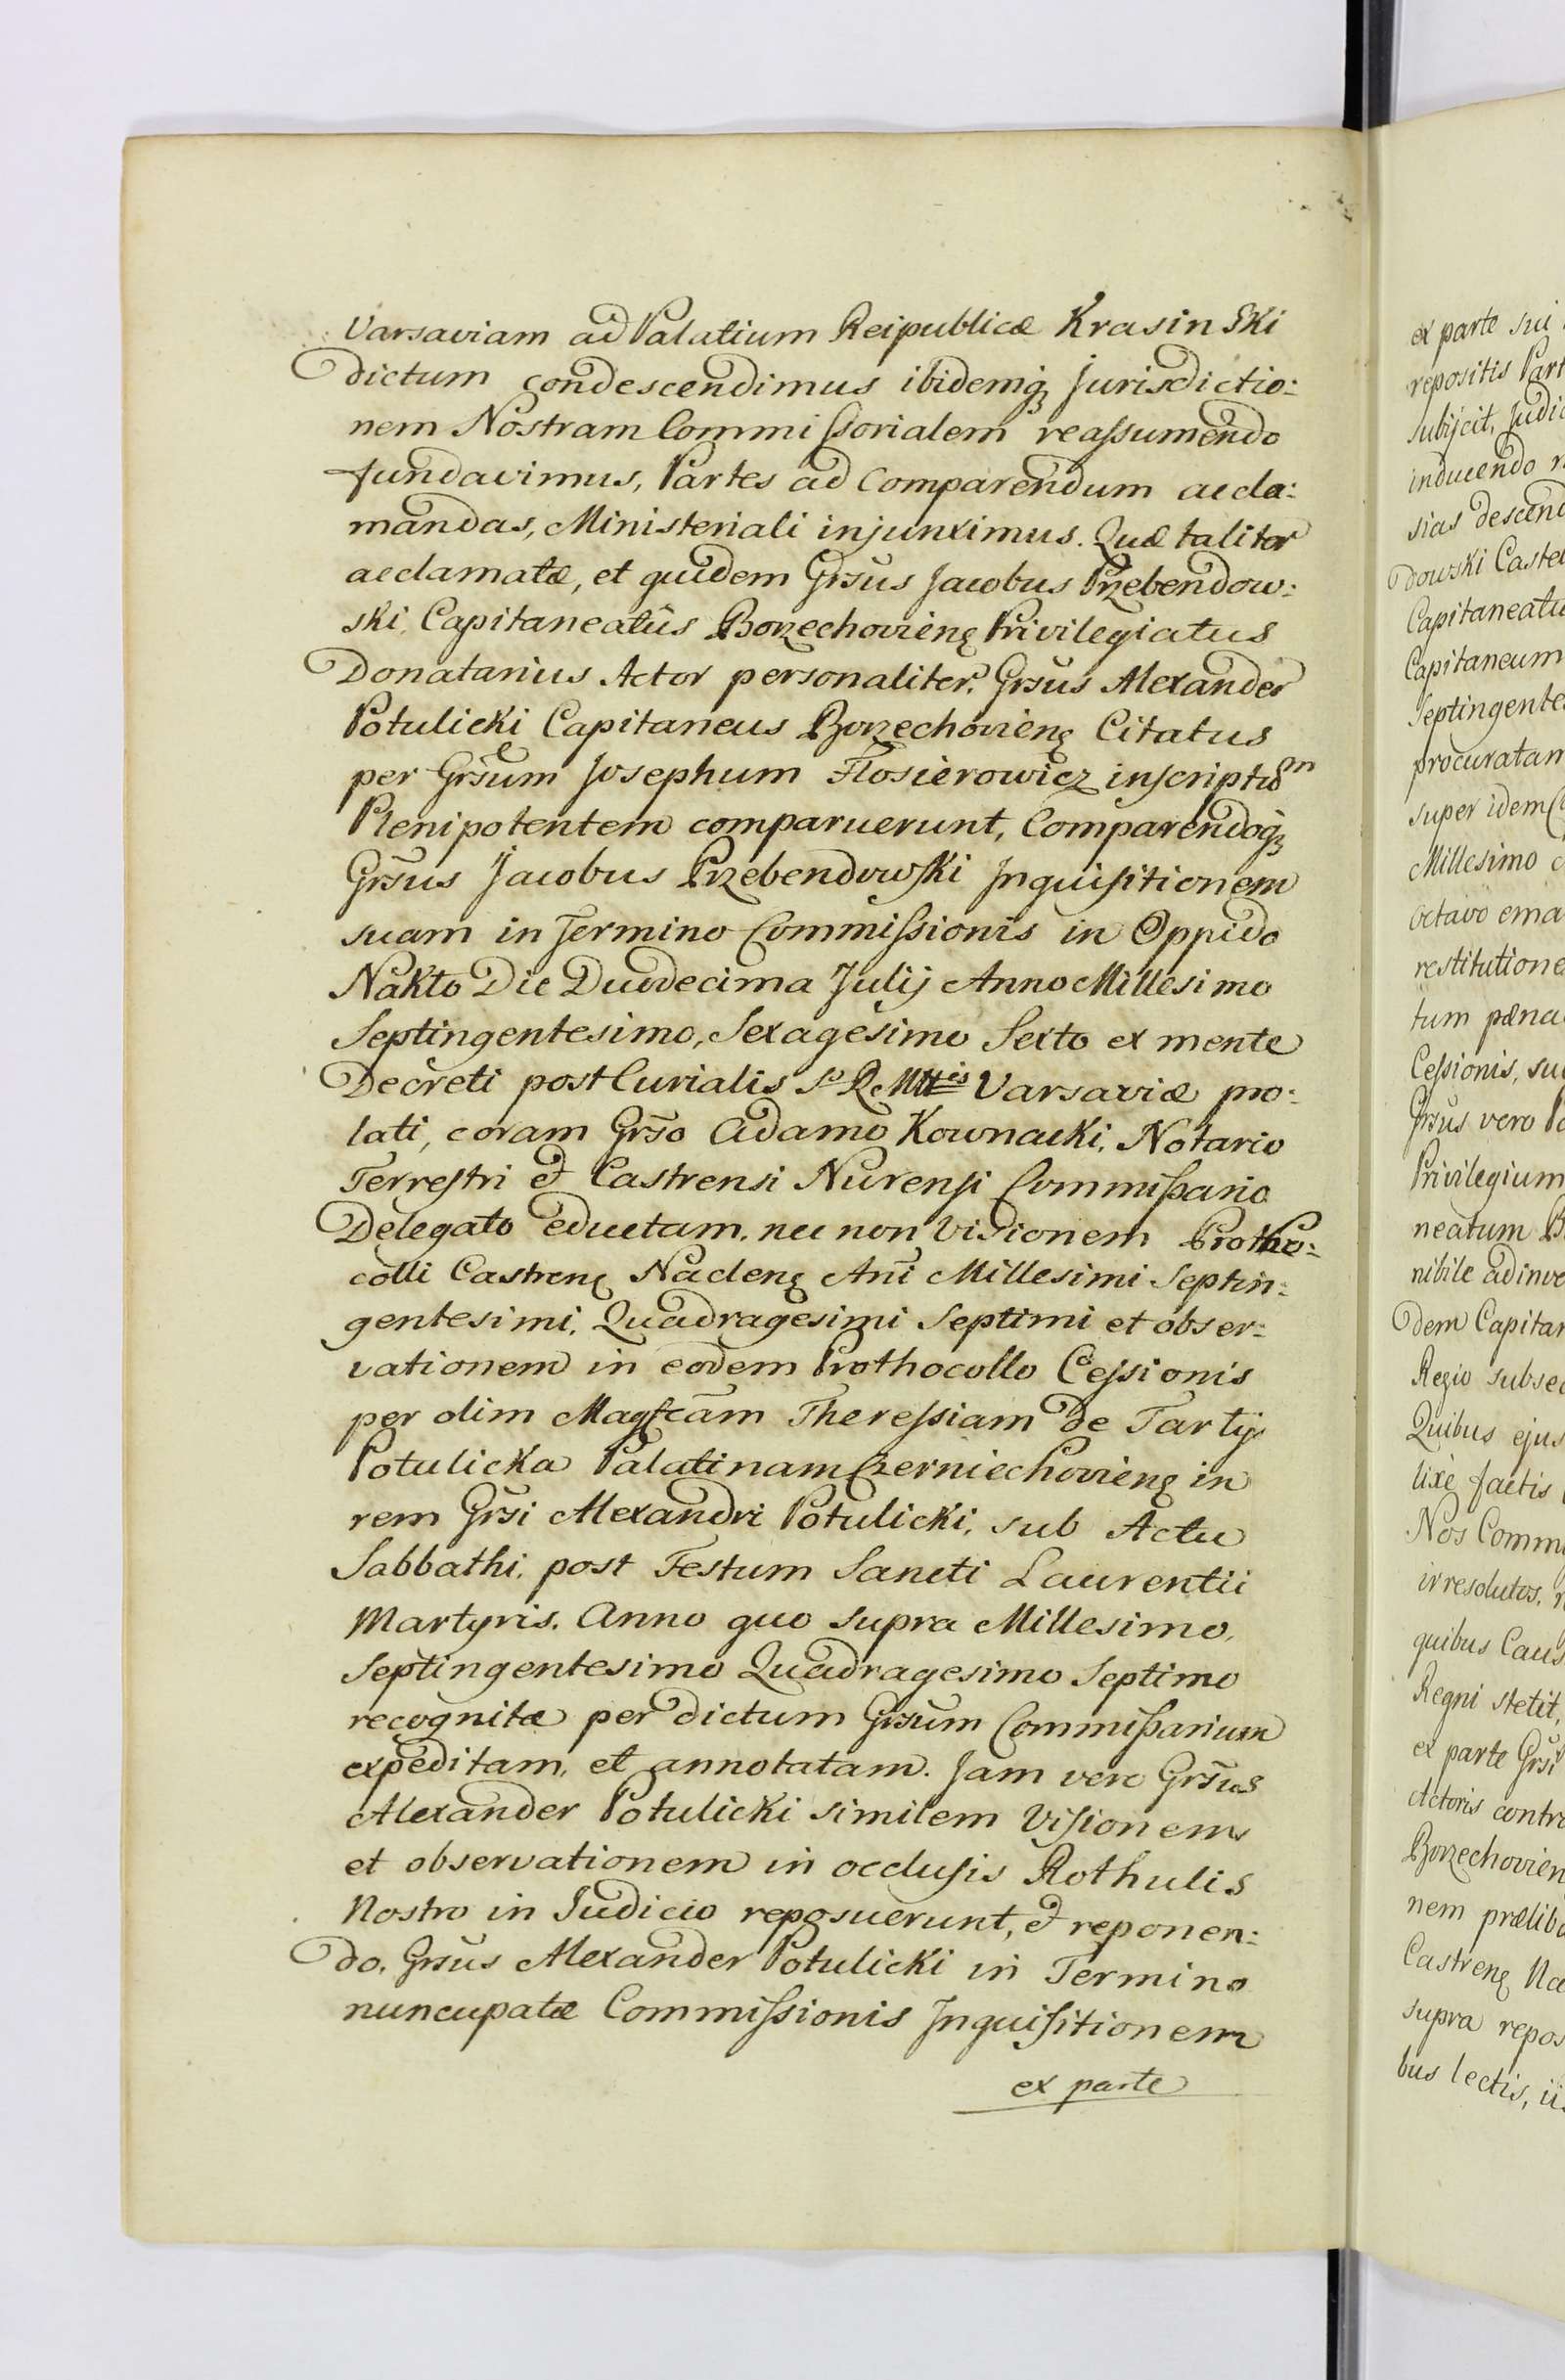 Varsaviam ad Palatium Reipublicæ Krasinski
dictum condescendimus ibidemq; Jurisdictio:
nem Nostram Commissorialem reassumendo
fundavimus, Partes ad Comparendum acclα:
mandas, Ministeriali injunximus. Quæ taliter
acclamatæ, et quidem Grsus Jacobus Przebendow:
ski Capitaneatûs Borzechovieng Privilegiatus
Donatarius Actor personaliter, Grsus Alexander
Potulicki Capitaneus Borzechovieng Citatus
per Grsum Josephum Flosierowicz inscriptũm
Plenipotentem comparuerunt, Comparendoq;
Grsus Jacobus Przebendowski Inquisitionem
suam in Termino Commissionis in Oppido
Nakło Die Duodecima Julij Anno Millesimo
Septingentesimo, Sexagesimo Sexto ex mente
Decreti post Curialis Sæ Ræ Mttis Varsaviæ pro:
lati, coram Grso Adamo Kownacki, Notario
Terrestri & Castrensi Nurensi Commissario
Delegato eductam, nec non Visionem Protho:
colli Castreng Nacleng Añi Millesimi Septin:
gentesimi, Quadragesimi Septimi et obser:
vationem in eodem Prothocollo Cessionis
per olim Magfcam Theressiam de Tarty
Potulicka Palatinam Czerniechovieng in
rem Grsi Alexandri Potulicki, sub Actu
Sabbathi, post Festum Sancti Laurentii
Martyris, Anno quo supra Millesimo,
Septingentesimo Quadragesimo Septimo
recognitæ per dictum Grsum Commissarium
expeditam, et annotatam. Jam vero Grsus
Alexander Potulicki similem Visionem
et observationem in occlusis Rothulis
Nostro in Judicio reposuerunt, & reponen:
do, Grsus Alexander Potulicki in Termino
nuncupatæ Commissionis Inquisitionem
ex parte
ex parte sui
repositis Part
subijcit, Judic
inducendo
sias descend
dowski Castel
Capitaneatu
Capitaneum
Septingente
procuratam
super idem
Millesimo
octavo ema
restitutione
tum pæna
Cessionis, su
Grsus vero
Privilegium
neatum B
nibile adinve
dem Capitan
Regio subse
Quibus ejus
lixè factis
Nos Comm
irresolutos,
quibus Caus
Regni stetit,
ex parte Grsi
Actoris contra
Borzechovien
nem prælib
Castreng Na
supra repos
bus lectis, ii